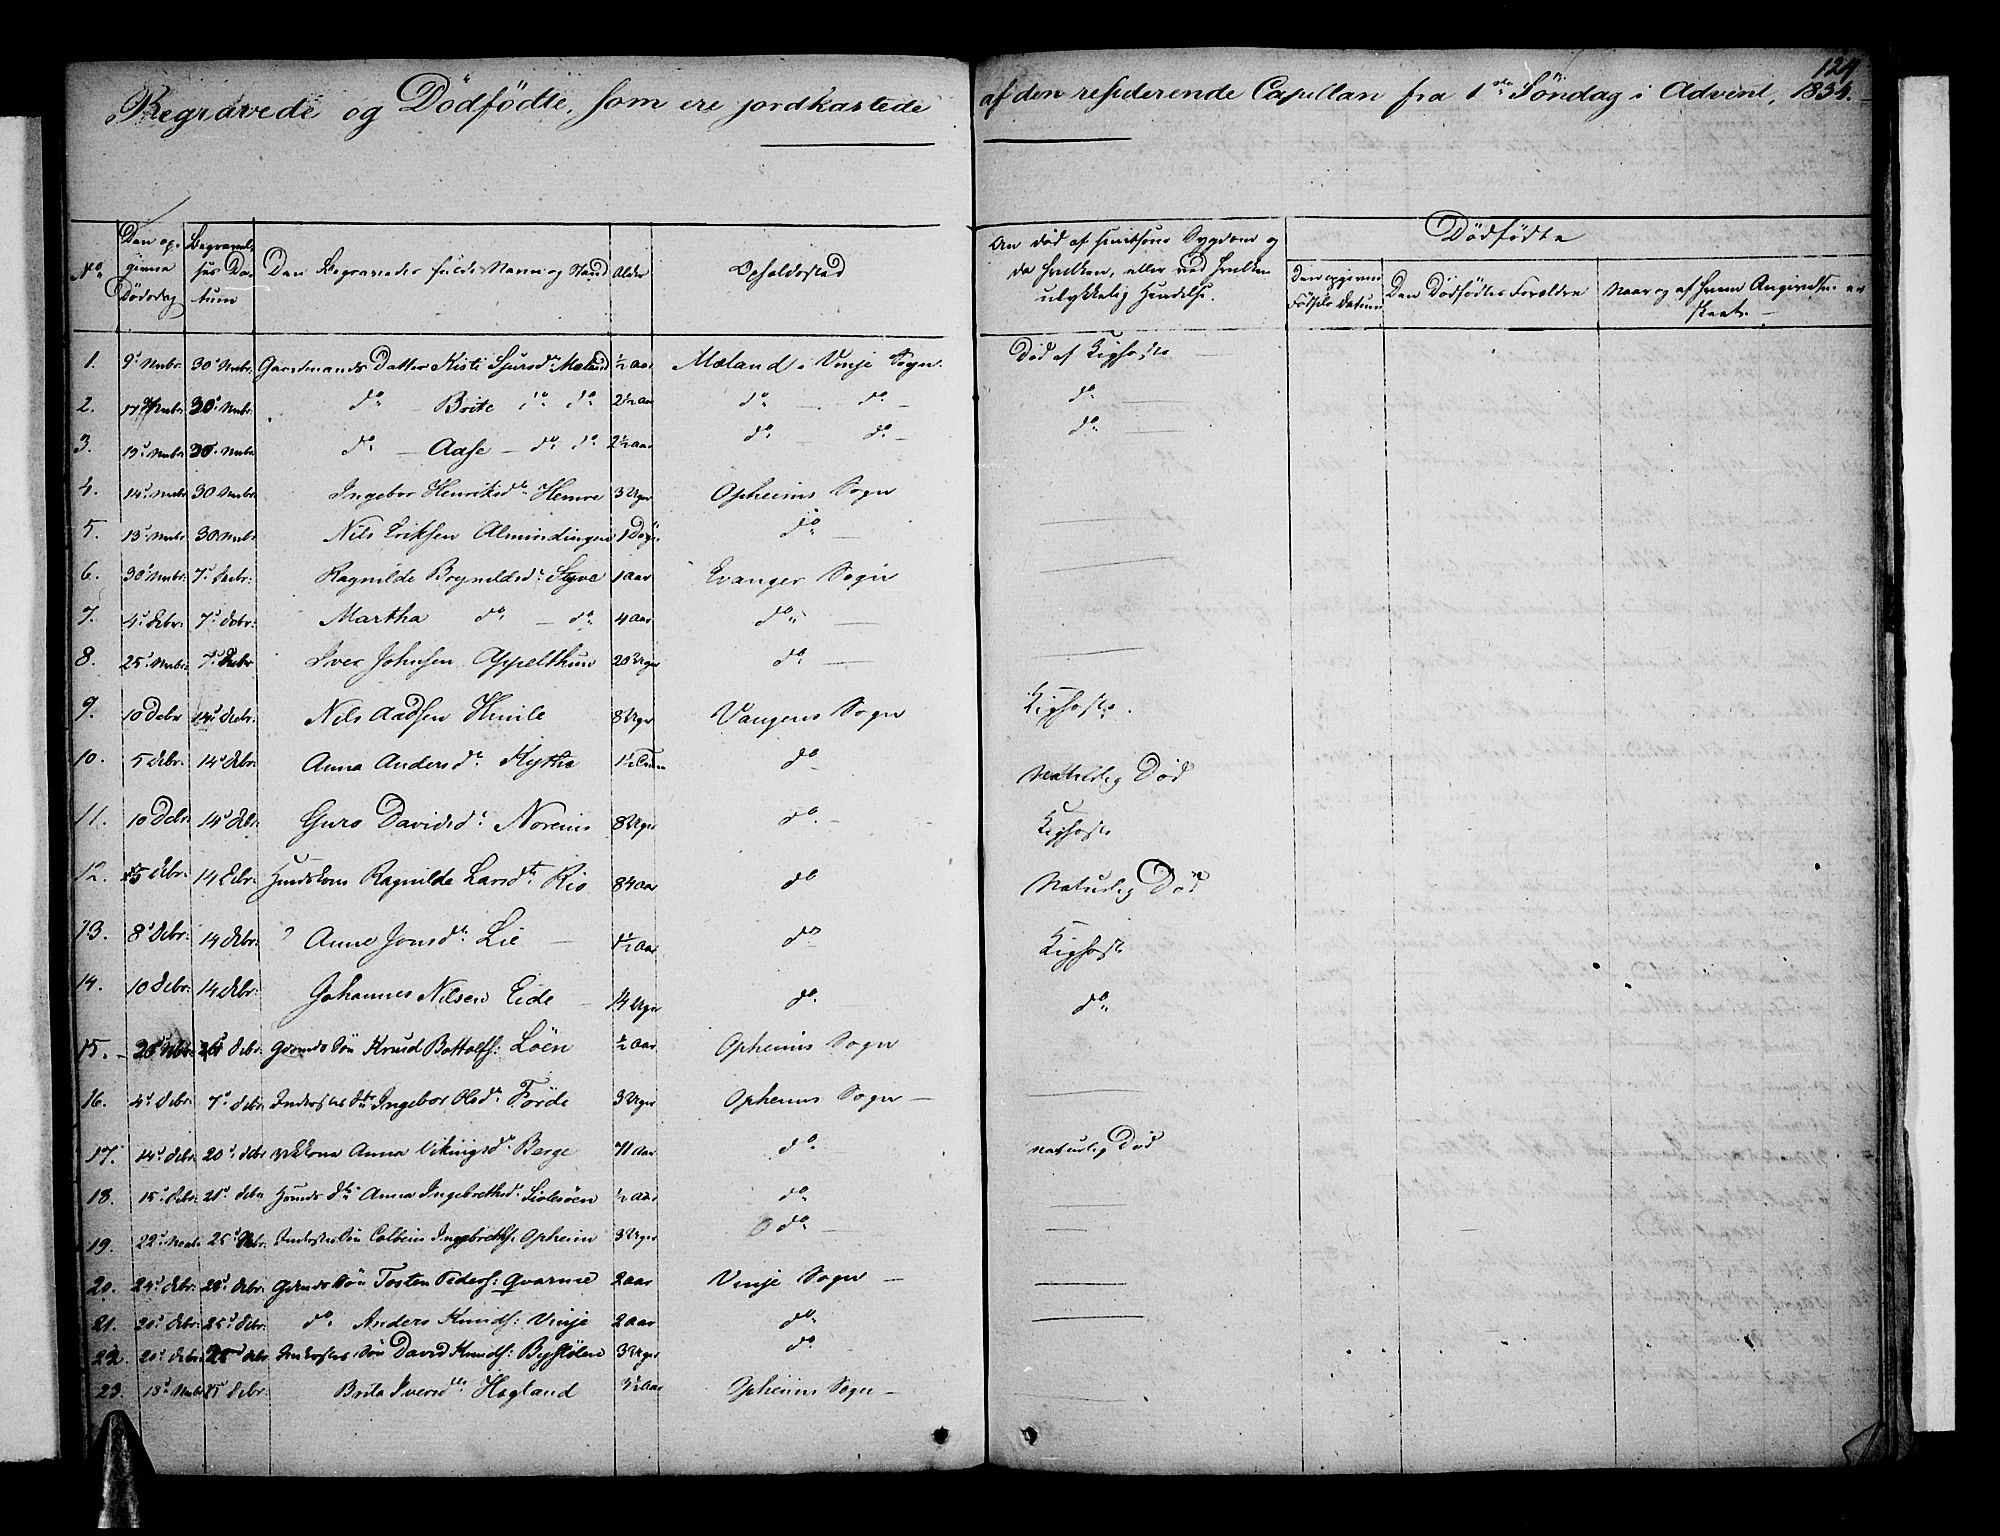 124
Begravede og Dödfödte, som ere jordkastede af den residerende Capellan fra 1ste Söndag i Advent, 1834.
No
Den opgivne Dödsdag
Begravelses Datum
Den Begravedes fulde Navn og Stand
Alder
Opholdssted
An död af smitsom Sygdom og da hvilken, eller ved hvilken ulykkelig Hendelse.
Dödfödte
Den opgivne Födsels Datum
Den Dödfödtes Forældre
Naar og af hvem Angivelsen er skeet.
1. 9d Nvbr. 30d Nvbr. Gaardmands Datter Kisti Sjursdr. Mæland ½ Aar Mæland i Vinje Sogn. Död af Kighoste
2. 30d Nvbr. do Brite do do 2½ Aar do do do
3. 13d Nvbr. 30d Nvbr. do Aase do do 2½ Aar do do do
4. 14d Nvbr. 30 Nvbr. Ingebor Henriksdr. Hemre 3 Uger Opheims Sogn
5. 13d Nvbr. 30 Nvbr. Nils Eriksen Almindingen 1 Dögn do
6. 30d Nvbr. 7d Dcbr. Ragnilde Brynildsd. Styve 1 Aar Evanger Sogn
7. 4d Dcbr. 7d Dcbr. Martha do do 4 Aar do
8. 25d Nvbr. 7d Dcbr. Iver Johnsen Appelthun 20 Uger do
9. 10 Dcbr 14d Dcbr. Nils Aadsen Himle 8 Uger Vangens Sogn Kighoste.
10. 5 Dcbr. 14d Dcbr. Anna Andersdr. Kythe 1½ do Naturlig Död
11. 10 Dcbr. 14d Dcbr. Guro Davidsd. Noreim 8 Uger do Kighoste
12. 5 Dcbr. 14 Dcbr. Ragnilde Larsdtr. Rio 84 Aar do Naturlig Död
13. 8d Dcbr. 14 Dcbr. Anne Jonsdr. Lie 1½ Aar do Kighoste
14. 10 Dcbr. 14 Dcbr. Johannes Nilsen Eide 14 Uger do do
15. Dcbr. Gmds Sön Knud Bottolfs: Löen ½ Aar Opheims Sogn
16. 4d Dcbr. 7d Dcbr Inderstes Dtr Ingebor Olsdr. Förde 3 Uger Opheims Sogn
17. 14d Dcbr. 20d Dcbr Anna Vikingsdr. Berge 71 Aar do naturlig Död
18. 15d Dcbr. 21d Dcbr Anna Ingebrethsd. ½ Aar do
19. 22d 25d Inderstes Sön Colbein Ingebretths: Opheim 3 Uger do
20. 24d Dcbr. 28d Dcbr. Gmds Sön Tosten Peders: Qvarme 2 Aar Vinje Sogn
21. 20d Dcbr. 25d Dcbr. do Anders Knuds: Vinje 2 Aar do
22. 20d Dcbr. 25d Dcbr Inderstes Sön David Knuds: Bystölen 3 Uger do
23. 18d Nvbr Dcbr. Brita Iversdtr Hagland 3½ Aar Opheims Sogn